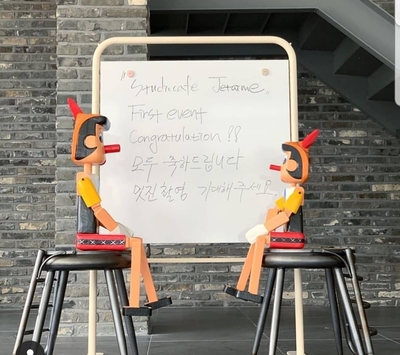 "Syndicate Jerome.
First event
Congratulation !!
모두 축하드립니다
멋진촬영 기대해주세요